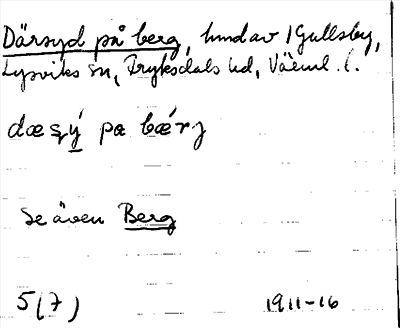 Därsyd på berg, hmd av /Gullsby,
Lysviks sn, Fryksdals hd, Värml. l.
dæșý pα bǽrj
Se även Berg
5(7) 1911-16